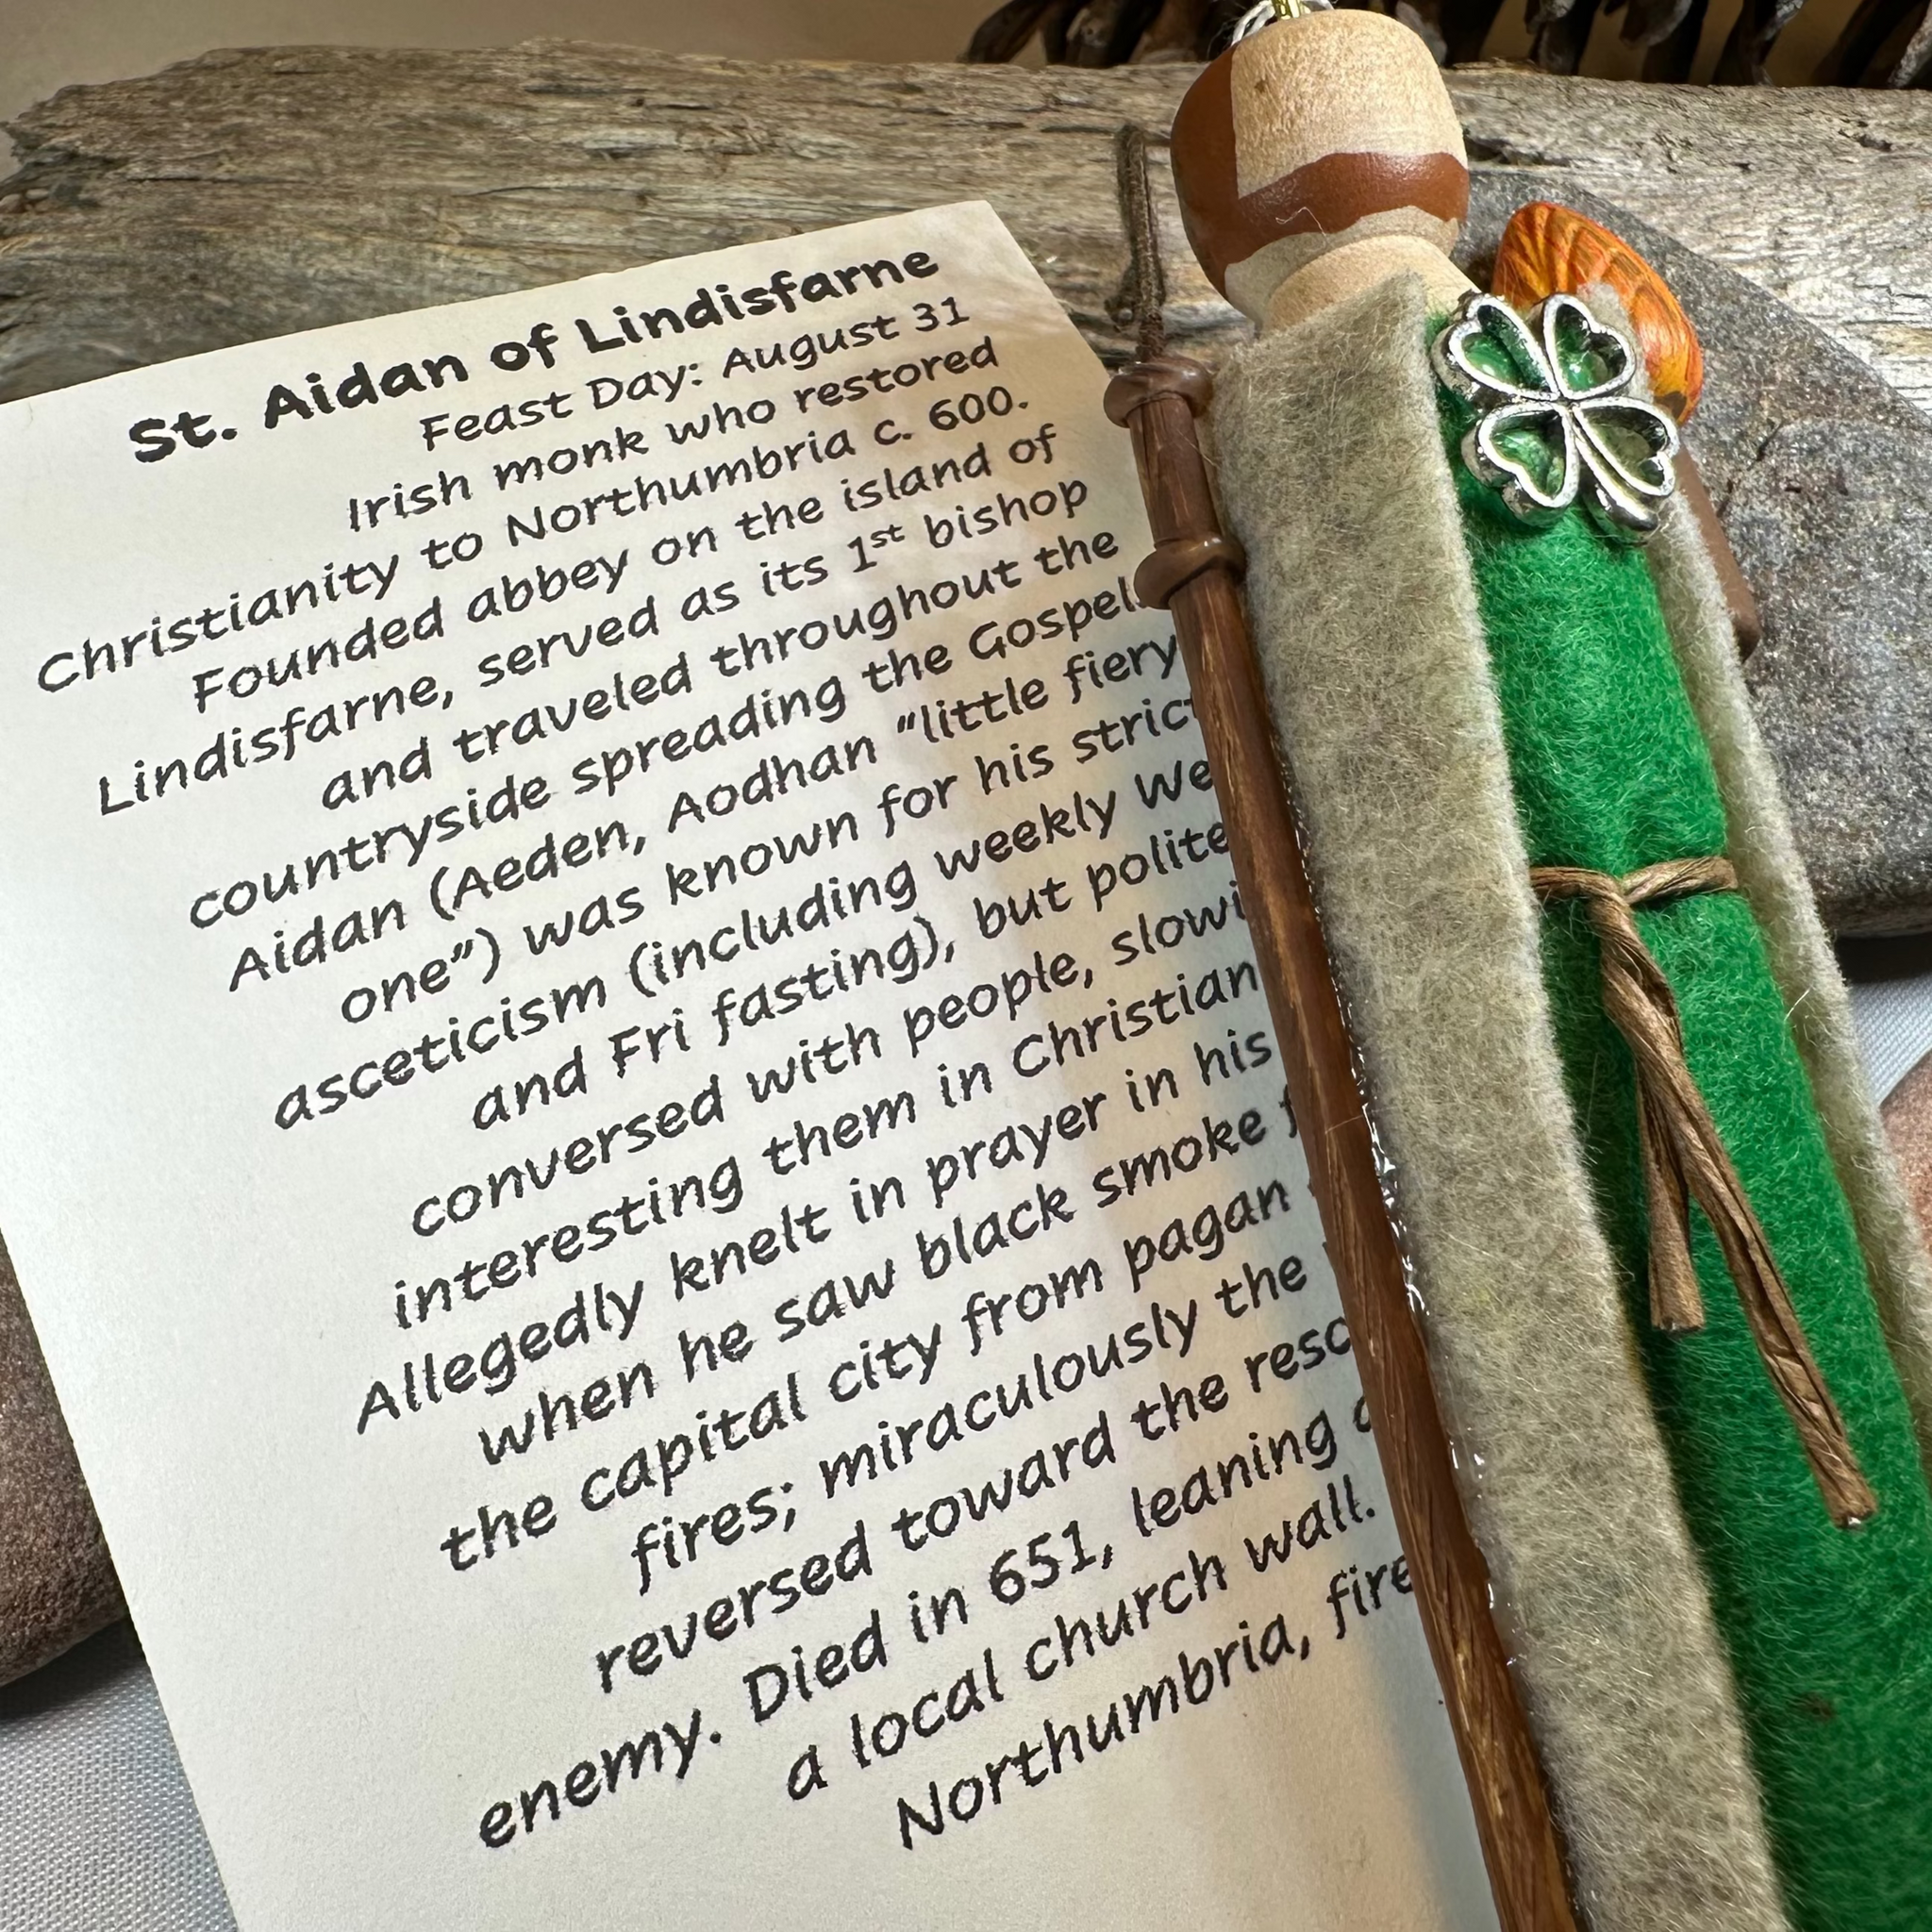 St. Aidan of Lindisfarne
Feast Day: August 31
Irish monk who restored
Christianity to Northumbria c. 600.
Founded abbey on the island of
Lindisfarne, served as its 1st bishop
and traveled throughout the
countryside spreading the Gospel
Aidan (Aeden, Aodhan "little fiery
one") was known for his strict
asceticism (including weekly
and Fri fasting), but polite
conversed with people,
interesting them in Christian
Allegedly knelt in prayer in his
when he saw black smoke
the capital city from pagan
fires; miraculously the
reversed toward the
enemy. Died in 651, leaning
a local church wall.
Northumbria,